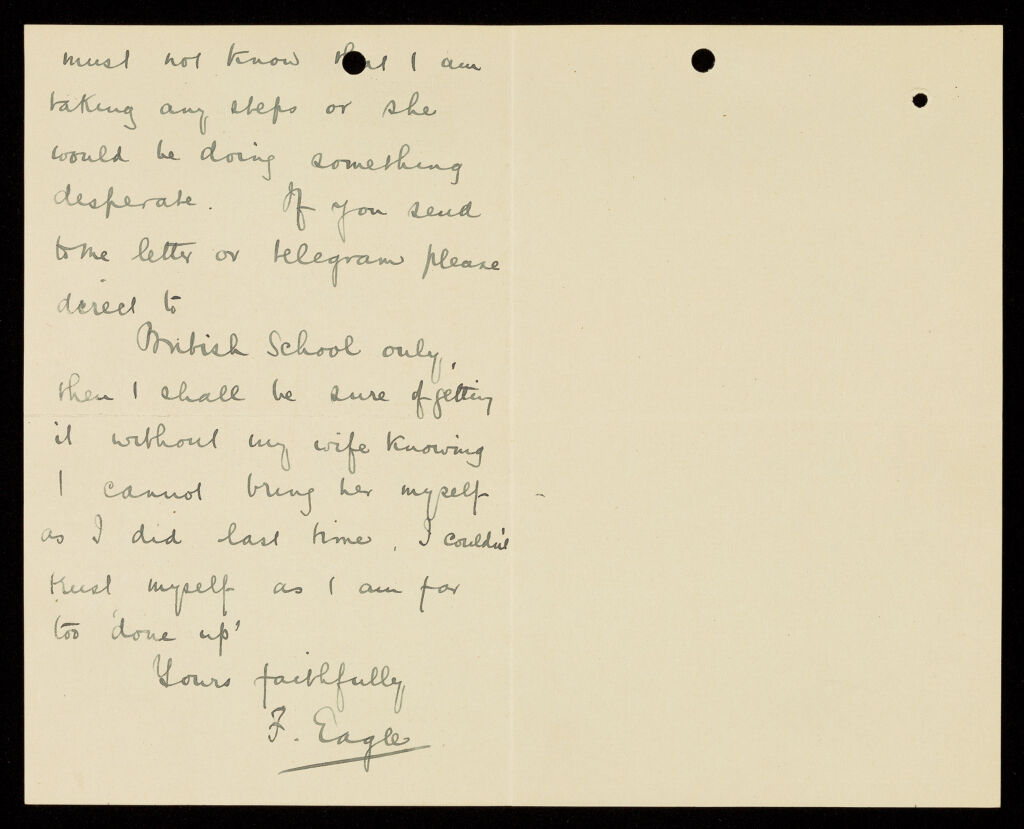 must not know that I am
taking any steps or she
would be doing something
desperate. If you send
to me letter or telegram please
direct to
British School only,
then I shall be sure of getting
it without my wife knowing
I cannot bring her myself
as I did last time, I couldn't
trust myself as I am far
too 'done up'
Yours faithfully
F. Eagle